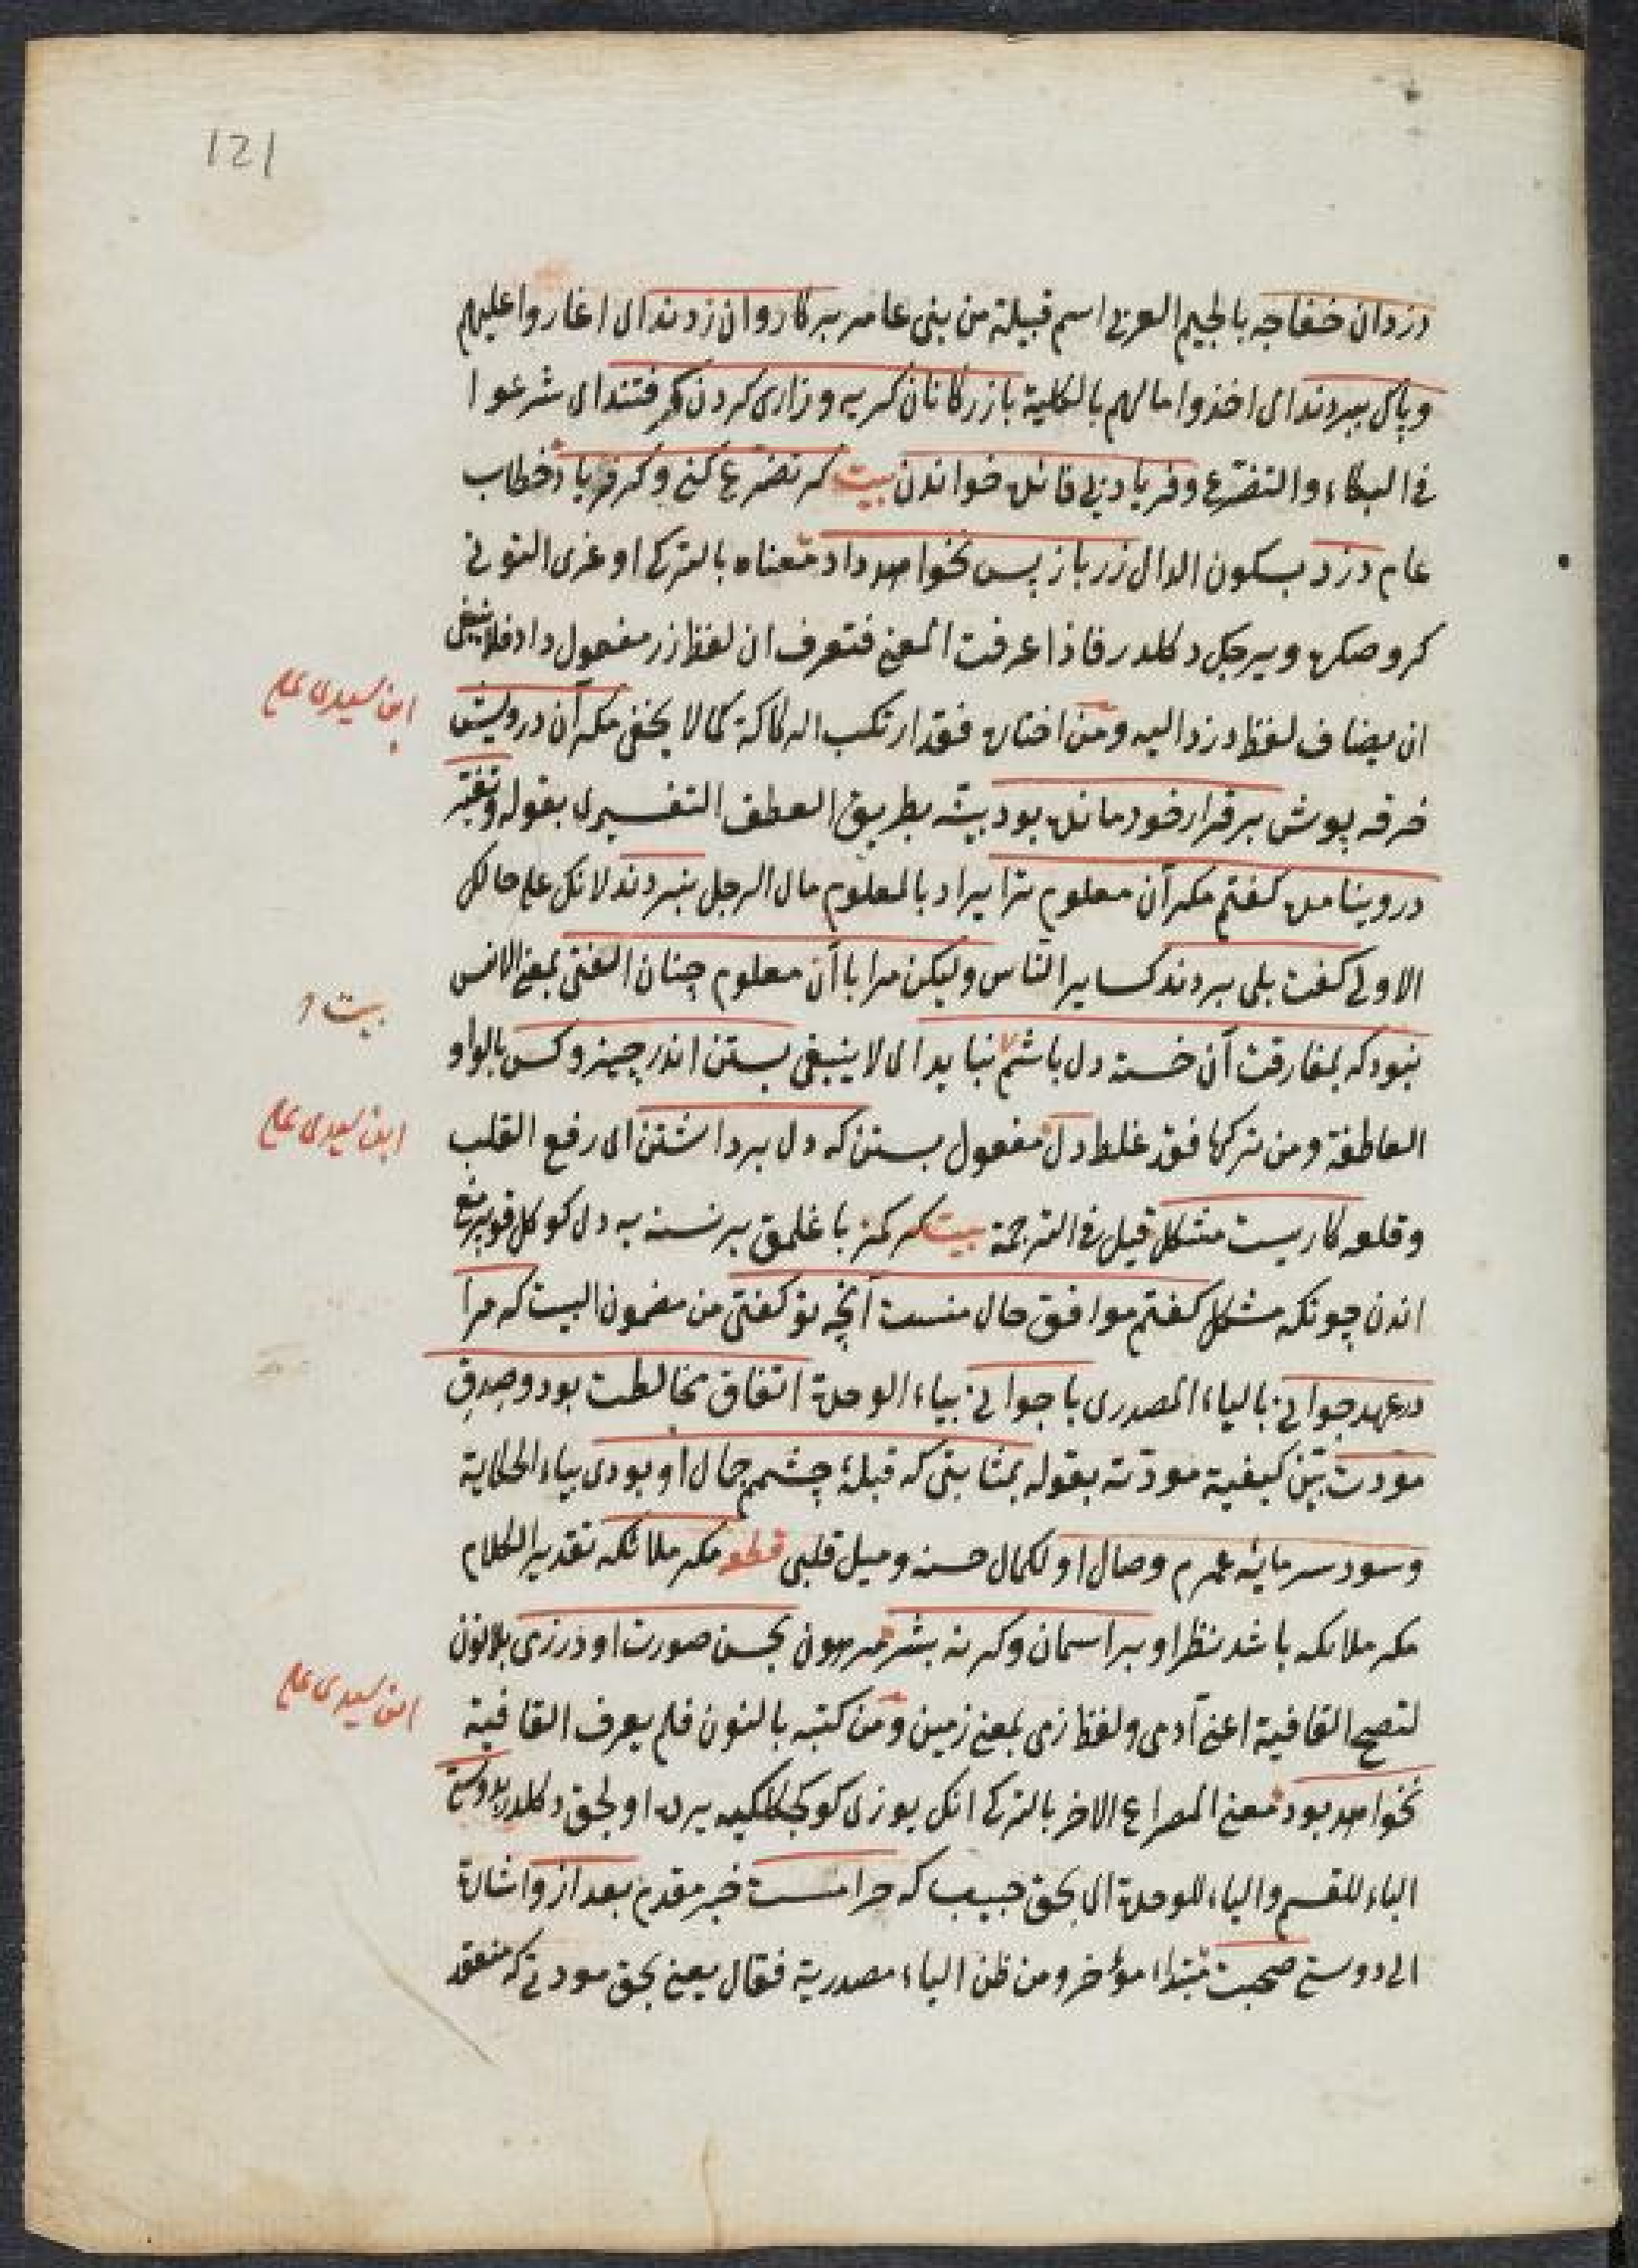 121
دزدان خفاجه بالجيم العربى اسم قبيلة من بنى عامر بر كاروان زدند اى اغاروا عليهم
وپاك ببردند اى اخذوا مالهم بالكلية بازركانان كريه وزارى كردن كرفتند اى شرعوا
فى البكاء والتضرع وفرياد بى فائده خواندن بيت كر تضرع كنى وكر فرياد خطاب
عام دزد بسكون الدال زر باز پس نخواهد داد معناه بالتركى اوغرى التونى
كرو ويرجك دكلدر فاذا عرفت المعنى فتعرف ان لفظ زر مفعول داد فلا ينبغى
ان يضاف لفظ دزد اليه ومن اختاره فقد ارتكب الركاكة كما لا يخفى مكر آن درويش
ابن سيدى على
خرقه پوش بر قرار خود مانده بود بيته بطريق العطف التفسيرى بقوله وتغير
درو نيامده كفتم مكر آن معلوم ترا يراد بالمعلوم مال الرجل نبردند لانك على حالك
الاولى كفت بلى بردند كساير الناس وليكن مرا با آن معلوم چنان الفتى بمعنى الانس
نبود كه بمفارقت آن خسته دل باشم نبايد اى لا ينبغى بستن اندر چيز وكس بالواو
بيت
العاطفة ومن تركها فقد غلط دل مفعول بستن كه دل برداشتن اى رفع القلب
ابن سيدى على
وقلعه كاريست مشكل قيل فى الترجمة بيت كركمز باغلمق بر نسنه يه دل كوكل قوپرمغ
اندن چونكه مشكل كفتم موافق حال منست آنچه تو كفتى من مضمون البيت كه مرا
در عهد جوانى بالياء المصدرى با جوانى بياء الوحدة اتفاق مخالطت بود وصدق
مودت بين كيفية مودته بقوله بمثابتى كه قبلۀ چشمم جمال او بودى بياء الحكاية
وسود سرمايۀ عمرم وصال او لكمال حسنه وميل قلبى قطعه مكر ملائكه تقدير الكلام
مكر ملائكه باشد نظر او بر اسمان وكر نه بشر بحسن صورت او در زمى بلا نون
لتصح القافية اعنى آدمى ولفظ زمى بمعنى زمين ومن كتبه بالنون فلم يعرف القافية
ابن سيدى على
نخواهد بود معنى المصراع الاخر بالتركى انك يوزى كوكجكلكيه يرده اولجق دكلدر بدوستى
الباء للقسم والياء للوحدة اى بحق حبيب كه حرامست خبر مقدم بعد ازو اشارة
الى دوستى صحبت مبتداء مؤخر ومن ظن الياء مصدرية فقال يعنى بحق مودتى كه منعقد